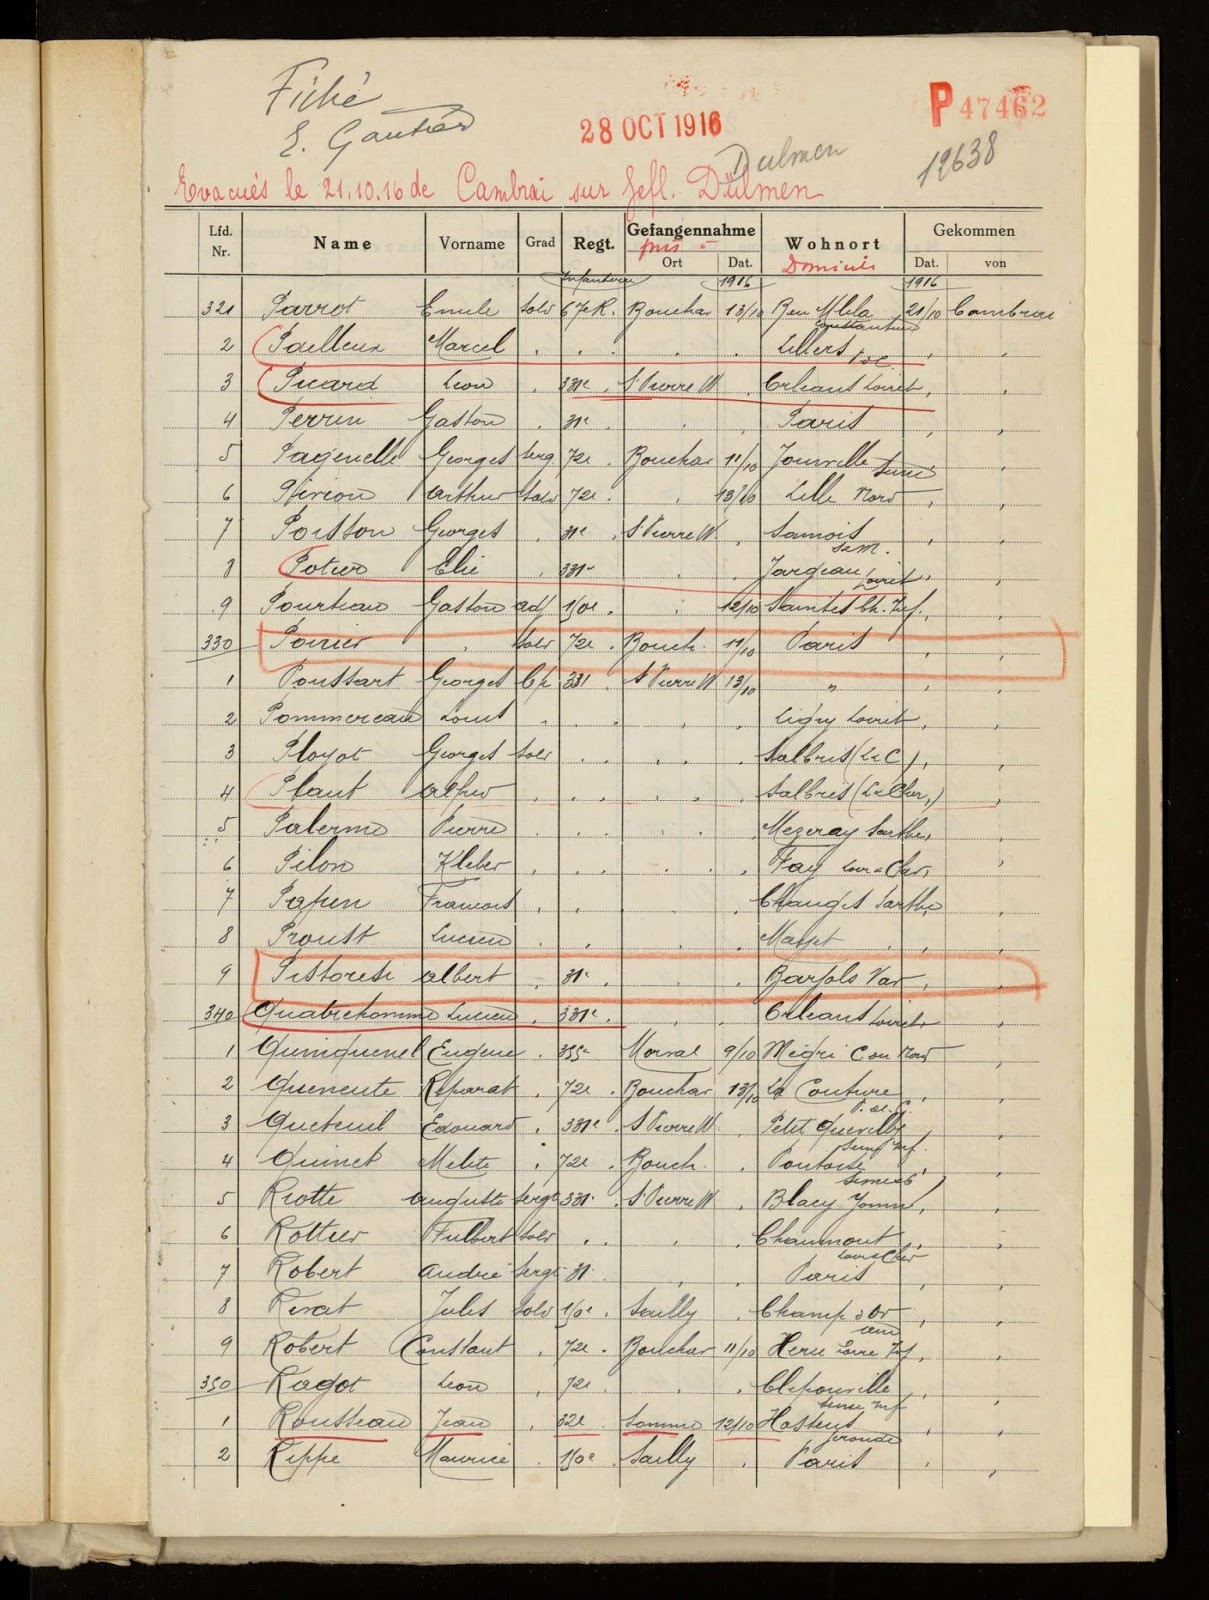 Fiché
E. Gautier
28 OCT 1916
P 47462
Dülmen
12638
Evacués le 21.10.16 de Cambrai sur Gefl. Dülmen
Lfd. Nr. Name Vorname Grad Regt. Gefangennahme Wohnort Gekommen
pris Ort Dat. Domicile Dat. von
Infanterie 1916 1916
321 Parrot Emile Sold 67e R. Bouchav 13/10 21/10 Cambrai
Constantine
2 Pailleux Marcel . . . . Lillers P.d.C. , ,
3 Picard Leon . 331e St Pierre W . Orleans Loiret , ,
4 Perrin Gaston . 31e . . Paris , ,
5 Pagenelle Georges Serg 72e Bouchav 11/10 , ,
6 Pirion Arthur Sold 72e . . 13/10 Lille Nord , ,
7 Poisson Georges . 31e St Pierre W. . Samois , ,
S et M.
8 Potier Elie . 331e . . Jargeau Loiret , ,
9 Gaston adj 150e . . 12/10 Saintes Ch. Inf. , ,
330 Poirier . Sold 72e . Bouch. 11/10 Paris , ,
1 Poussart Georges Cp 331 St Pierre W 13/10 " , ,
2 Pommereau Louis . . . . Ligny Loiret , ,
3 Ployot Georges Sold . . . . Salbris (L et C) , ,
4 Plaut . . . . . Salbris (L et Cher,) ,
5 Palerme Pierre . . . . Mezeray Sarthe, ,
6 Pilon Kleber . . . . . Fay Loir et Cher, ,
7 Papin Francois . . . . Changes Sarthe ,
8 Proust Lucien . . . , ,
9 Pistoresi Albert . 31e . . Var , ,
340 Quatrehomme Lucien . 331e . . . Orleans Loiret, ,
1 Quinquenel Eugene . 355e Morval 9/10 ,
2 Reparat . 72e . Bouchav 13/10 La Couture , ,
P. de C.
3 Queteuil Edouard . 331e . St Pierre W. . Petit Quevilly ,
Seine Inf.
4 Quinet . 72e . Bouch. . Pontoise , ,
5 Riotte Auguste Sergt 331e St Pierre W . Blacy Yonne , ,
6 Rottier Fulbert Sold . . . . Chaumont , ,
Loir et Cher
7 Robert André Sergt 31 . . Paris , ,
8 Jules Sold 150e . Sailly , ,
9 Robert Constant . 72e . Bouchav 11/10 , ,
350 Ragot Leon . 72e . . , ,
Seine Inf
1 Rousseau Jean . 32e . Somme 12/10 Hostens , ,
Gironde
2 Rippe Maurice . 150e Sailly . Paris , ,